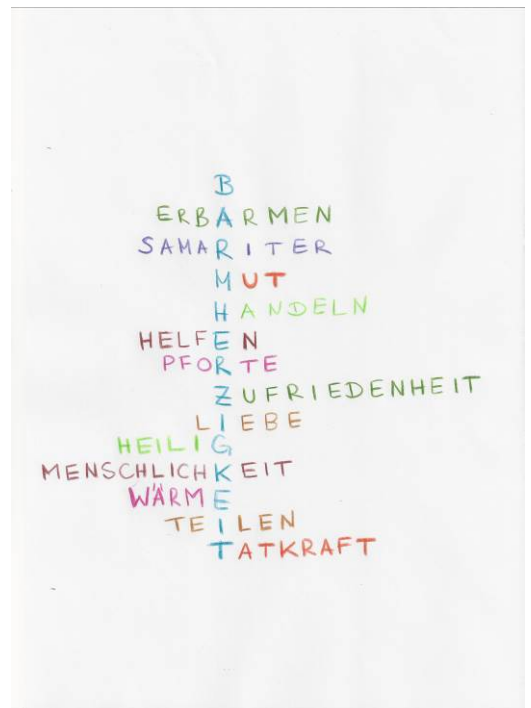 B
ERBARMEN
SAMARITER
MUT
HANDELN
HELFEN
PFORTE
ZUFRIEDENHEIT
LIEBE
HEILIG
MENSCHLICHKEIT
WÄRME
TEILEN
TATKRAFT